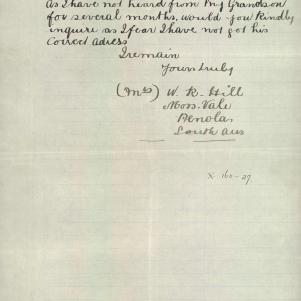 As I have not heard from My Grandson
for several months, would you kindly
inquire as I fear I have not got his
Correct Adress
I remain
Yours truly
(Mrs) W. R. Hill
Moss. Vale
Penolas
South Aus
X 160-27